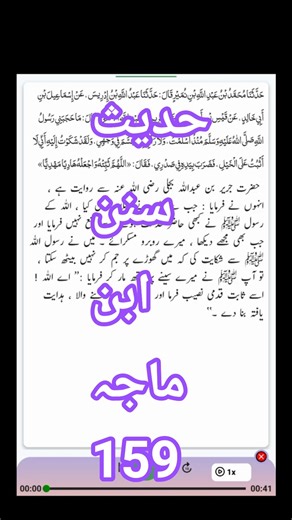 حَدَّثَنَا مُحَمَّدُ بْنُ عَبْدِ اللَّهِ بْنِ نُمَيْرٍ قَالَ: حَدَّثَنَا عَبْدُ اللَّهِ بْنُ إِدْرِيسَ، عَنْ إِسْمَاعِيلَ بْنِ
أَبِي خَالِدٍ، عَنْ قَيْسِ قَالَ: مَا حَجَبَنِي رَسُولُ
اللَّهِ صَلَّى اللهُ عَلَيْهِ وَسَلَّمَ مُنْذُ أَسْلَمْتُ، وَلَا فِي وَجْهِي، وَلَقَدْ شَكَوْتُ إِلَيْهِ أَنِّي لَا
أَثْبُتُ عَلَى الْخَيْلِ، فَضَرَبَ بِيَدِهِ فِي صَدْرِي، فَقَالَ: «اللَّهُمَّ ثَبِّتْهُ وَاجْعَلْهُ هَادِيًا مَهْدِيًّا»
حضرت جریر بن عبداللہ بجلی رضی اللہ عنہ سے روایت ہے ،
انہوں نے فرمایا : جب کیا ، اللہ کے
رسول ﷺ نے کبھی نہیں فرمایا اور
جب بھی مجھے دیکھا ، میرے روبرو مسکرائے ۔ میں نے رسول اللہ
ﷺ سے شکایت کی کہ میں گھوڑے پر جم کر نہیں بیٹھ سکتا ،
تو آپ ﷺ نے میرے سینے پر مار کر فرمایا :’’ اے اللہ !
اسے ثابت قدمی نصیب فرما اور والا ، ہدایت
یافتہ بنا دے ۔‘‘
حدیث
سنن
ابن
ماجہ
159
1x
00:00
00:41